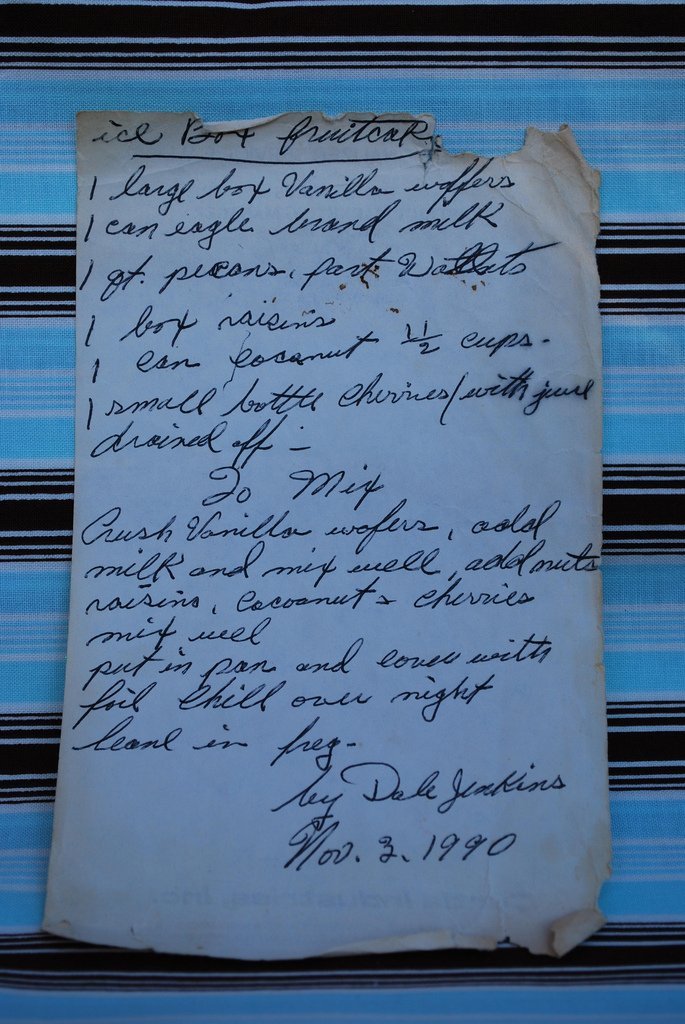 ice Box fruitcak
1 large box Vanilla waffers
1 can eagle brand milk
1 qt. pecans, part Wallnuts
1 box raisins
1 can cocanut 1 1/2 cups.
1 small bottle cherries/with juice
drained off -
To Mix
Crush Vanilla wafers, add
milk and mix well, add nuts
raisins, Cocoanut & cherries
mix well
put in pan and cover with
foil chill over night
leave in freg-
by Dale Jenkins
Nov. 3. 1990